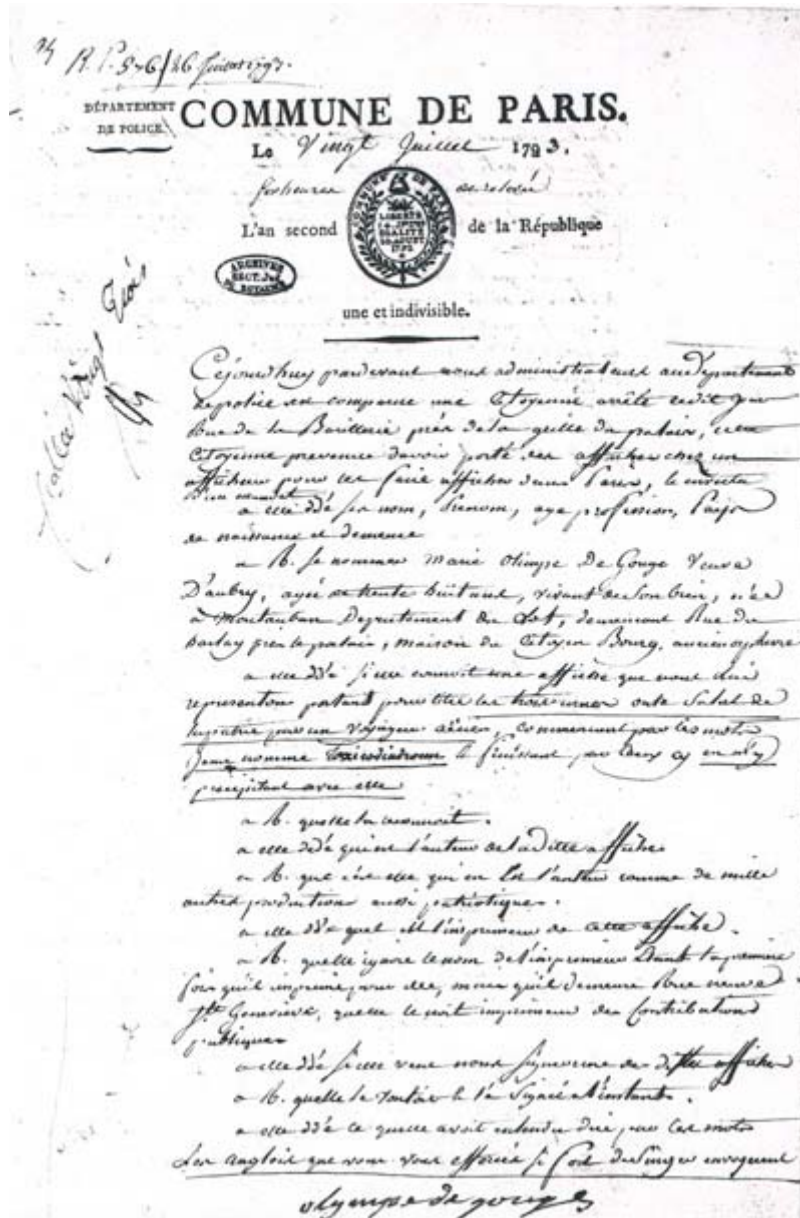 R. P. 876/26 Juillet 1793.
DÉPARTEMENT
DE POLICE.
COMMUNE DE PARIS.
Le Vingt Juillet 1793.
COMMUNE DE PARIS
LIBERTÉ
ÉGALITÉ
10 AOUST
1792
L'an second de la République
ARCHIVES
SECT. JUD.
DU ROYAUME
une et indivisible.
Cejourdhuy pardevant nous administrateurs au Département
de police est comparue une Citoyenne arrêté
Rue de la Barillerie près de la grille du palais,
Citoyenne prevenue davoir porté des affiches chez un
afficheur pour les faire afficher dans Paris,
a elle ddé ses nom, prenom, age profession, Pays
de naissance et demeure
a R. se nommer Marie Olimpe De Gouge Veuve
D'aubry, agée de trente huit ans, vivant de son bien, née
a Montauban Departement du Lot, demeurant Rue du
harlay près le palais, maison du Citoyen Bourg,
a elle ddé si elle connoit une affiche que nous lui
representons portant pour titre les trois urnes ou le Salut de
la patrie par un Voyageur aérien, commencant par les mots
et finissant par ceux cy
precipitant avec elle
a R. quelle la connoit.
a elle ddé qui est l'auteur de ladite affiche
a R. que cest elle qui en Est l'auteur comme de mille
autres productions aussi patriotiques.
a elle ddé quel est l'imprimeur de cette affiche.
a R. quelle ignore le nom de l'imprimeur Etant la premiere
fois quil imprime pour elle, mais quil demeure Rue neuve
Ste Genevieve, quelle le croit imprimeur des Contributions
publiques
a elle ddé si elle veut nous signer une des dittes affiches
a R. quelle le et l'a signé a l'instant.
a elle ddé ce quelle avoit entendu dire par ces mots
Les anglois que vous
olympe de gouges